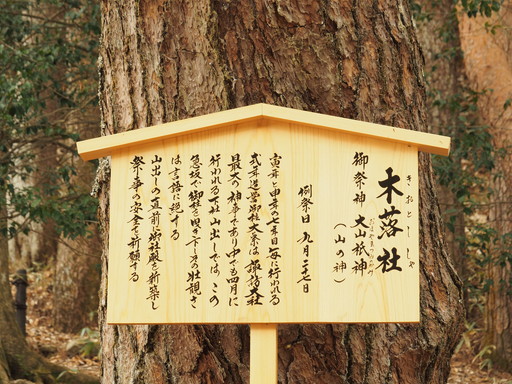 木落社
きおとししゃ
御祭神 大山祇神
おおやまづみのかみ
(山の神)
例祭日 九月二十七日
寅年と申年の七年目毎に行われる
式年造営御柱大祭は諏訪大社
最大の神事であり中でも四月に
行われる下社山出しでは、この
急坂で御柱を曳き下す壮観さ
は言語に絶する
山出しの直前に御社殿を新築し
祭事の安全を祈願する